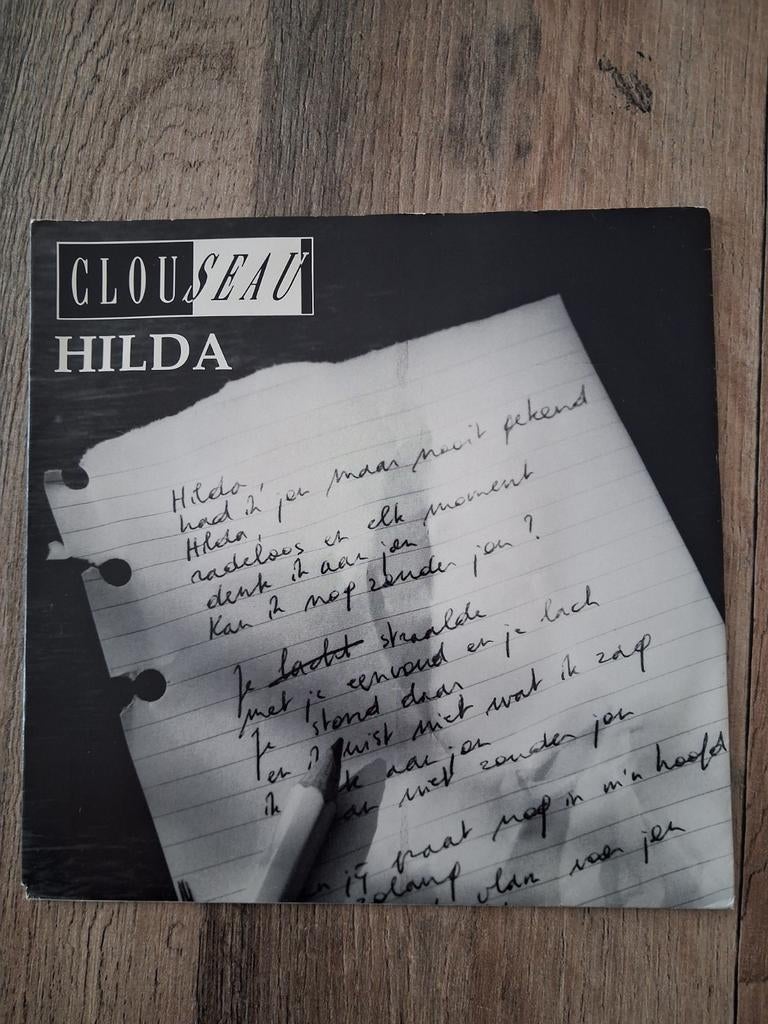 CLOUSEAU
HILDA
Hilda,
had ik jou maar nooit gekend
Hilda,
radeloos en elk moment
denk ik aan jou
Kan ik nog zonder jou?
Je lacht straalde
met je eenvoud en je lach
Je stond daar
en ik wist niet wat ik zag
ik aan jou
niet zonder jou
jij praat nog in m'n hoofd
zolang vlam voor jou